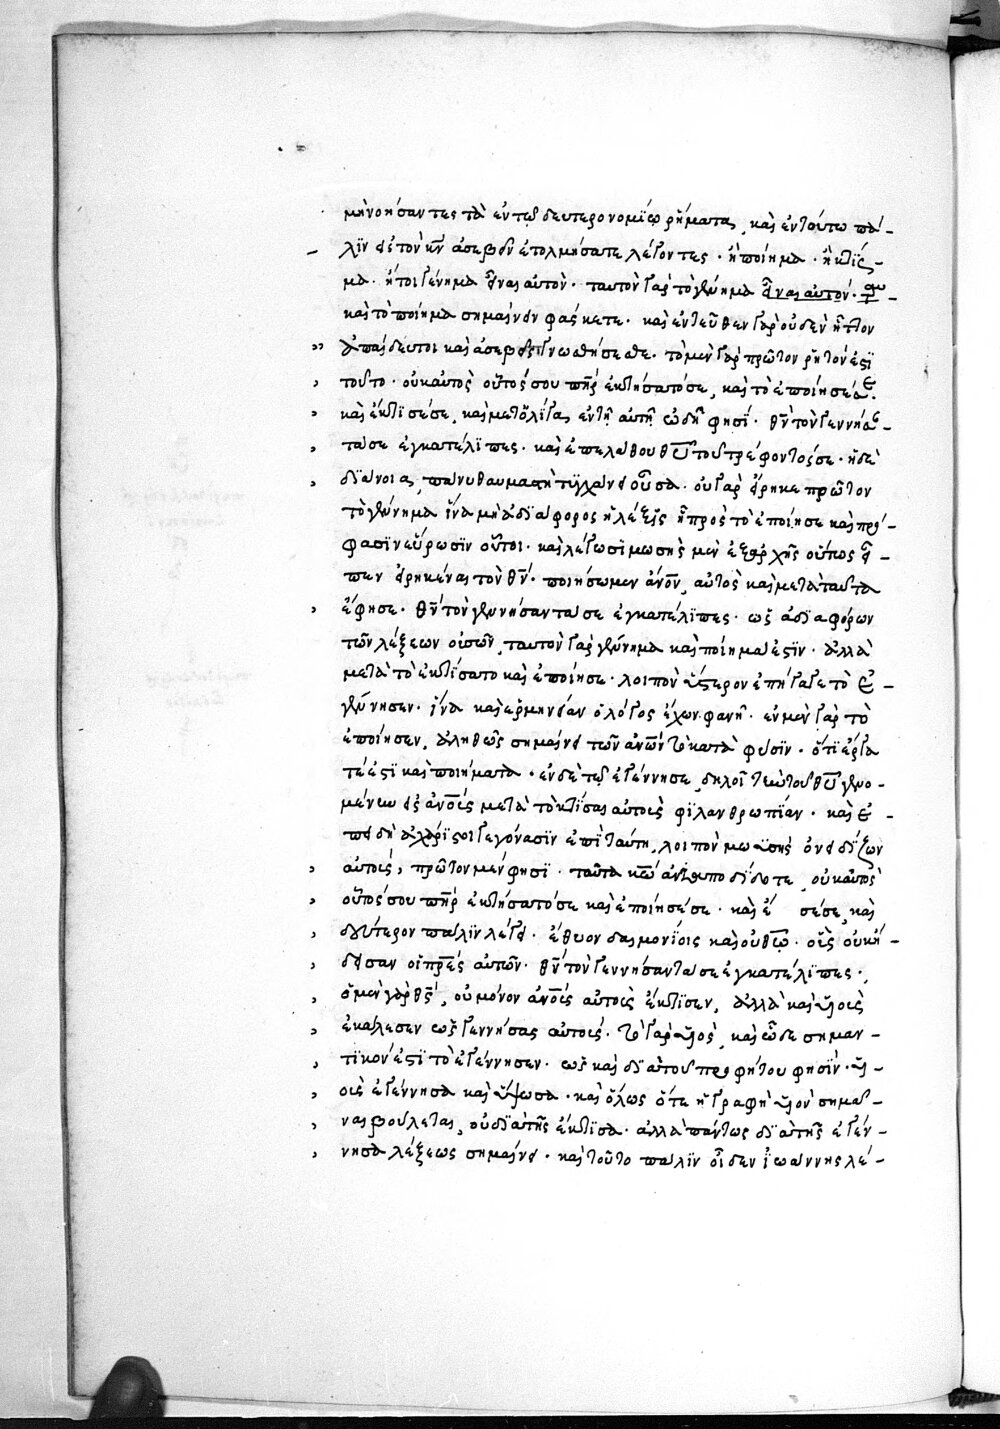 μὴ νοήσαντες τὰ ἐν τῷ δευτερονομίῳ ῥήματα, καὶ ἐν τούτω πά-
λϊν εἰ τὸν κν̅ ἀσεβεῖν ἐτολμήσατε λέγοντες· ἢ ποίημα· ἢ κτίσ-
μα· ἤτοι γένημα εἶναι αὐτόν· ταυτὸν γὰρ τὸ γέννημα εἶναι αὐτόν·
καὶ τὸ ποίημα σημαίνειν φάσκετε· καὶ ἐντεῦθεν γὰρ οὐδὲν ἧττον
ἀπαίδευτοι καὶ ἀσεβεῖς γνωσθήσεσθε· τὸ μὲν γὰρ πρῶτον ῥητόν ἐστϊ
τοῦτο· οὐκ αὐτὸς οὗτός σου πη̅ρ ἐκτήσατό σε, καὶ τὸ ἐποίησέ σε·
καὶ ἔκτϊσέ σε, καὶ μετ' ὀλίγα, ἐν τῇ αὐτῇ ὠδῇ φησί· θν̅ τὸν γεννήσαν-
τά σε ἐγκατέλϊπες· καὶ ἐπελάθου θυ̅ τοῦ τρέφοντός σε· ἡ δὲ
διάνοια, πάνυ θαυμαστὴ τυγχάνει οὖσα· οὐ γὰρ εἴρηκε πρῶτον
τὸ γέννημα ἵνα μὴ ἀδϊάφορος ἡ λέξις ᾖ πρὸς τὸ ἐποίησε καὶ πρό-
φασϊν εὕρωσϊν οὗτοι· καὶ λέγωσϊ μωσῆς μὲν ἐξ ἀρχῆς οὕπως εἶ-
πεν εἰρηκέναι τὸν θν̅· ποιήσωμεν ἄνον̅, αὐτὸς καὶ μετὰ ταῦτα
ἔφησε· θν̅ τὸν γεννήσαντά σε ἐγκατέλϊπες· ὡς ἀδϊαφόρων
τῶν λέξεων οὐσῶν, ταυτὸν γὰρ γέννημα καὶ ποίημά ἐστϊν· ἀλλὰ
μετὰ τὸ ἐκτίσατο καὶ ἐποίησε· λοιπὸν ὕστερον ἐπήγαγε τὸ ἐ-
γέννησεν· ἵνα καὶ ἑρμηνείαν ὁ λόγος ἔχων φανῇ· ἐν μὲν γὰρ τὸ
ἐποίησεν, ἀληθῶς σημαίνει τῶν ἀνων̅ τὸ κατὰ φύσϊν· ὅτϊ ἔργα
τέ ἐστϊ καὶ ποιήματα· ἐν δὲ τῷ ἐγέννησε, δηλοῖ τὴν τοῦ θυ̅ γενο-
μένην εἰς ἀνο̅υς μετὰ τὸ κτίσαι αὐτοὺς φϊλανθρωπίαν· καὶ ἐ-
πειδὴ ἀχάρϊστοι γεγόνασϊν ἐπὶ ταύτῃ, λοιπὸν μωυσῆς ὀνειδίζων
αὐτοὺς, πρῶτον μέν φησϊ· ταῦτα κω̅ ἀνταποδίδοτε, οὐκ αὐτὸς
οὗτός σου πη̅ρ ἐκτήσατό σε καὶ ἐποίησέ σε· καὶ ἔ σέ σε, καὶ
δεύτερον πάλϊν λέγει· ἔθυον δαιμονίοις καὶ οὐ θω̅· οἷς οὐκ ἤ-
δεισαν οἱ πρε̅ς αὐτῶν· θν̅ τὸν γεννήσαντά σε ἐγκατέλϊπες·
ὁ μὲν γὰρ θς̅, οὐ μόνον ἀνο̅υς αὐτοὺς ἔκτϊσεν, ἀλλὰ καὶ υἱοὺς
ἐκάλεσεν ὡς γεννήσας αὐτούς· τὸ γὰρ υἱὸς, καὶ ὧδε σημαν-
τϊκόν ἐστϊ τὸ ἐγέννησεν· ὡς καὶ δϊὰ τοῦ προφήτου φησϊν· υἱ-
οὺς ἐγέννησα καὶ ὕψωσα· καὶ ὅλως ὅτε ἡ γραφὴ υἱὸν σημά-
ναι βούλεται, οὐ δϊὰ τῆς ἔκτϊσα· ἀλλὰ πάντως δϊὰ τῆς ἐγέν-
νησα λέξεως σημαίνει· καὶ τοῦτο πάλϊν οἶδεν ἰωάννης λέ-